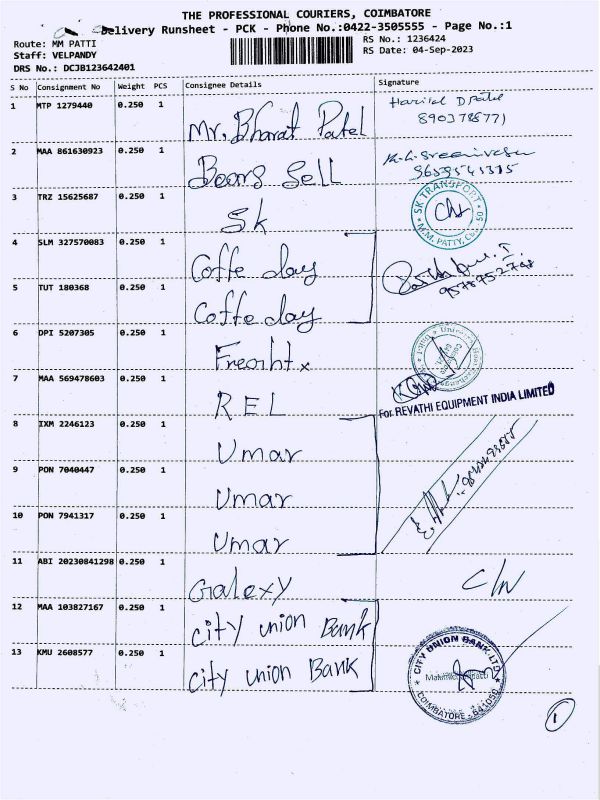 THE PROFESSIONAL COURIERS, COIMBATORE
Delivery Runsheet - PCK - Phone No.:0422-3505555 - Page No.:1
Route: MM PATTI
RS No.: 1236424
Staff: VELPANDY
RS Date: 04-Sep-2023
DRS No.: DCJB123642401
S No Consignment No Weight PCS Consignee Details Signature
1 MTP 1279440 0.250 1 Mr. Bharat Patel
2 MAA 861630923 0.250 1 Beors Sell
3 TRZ 15625687 0.250 1 Sk
SK TRANSPORT
M.M. PATTY,
4 SLM 327570083 0.250 1 Coffe day
5 TUT 180368 0.250 1 Coffe day
6 DPI 5207305 0.250 1
7 MAA 569478603 0.250 1 REL
For REVATHI EQUIPMENT INDIA LIMITED
8 IXM 2246123 0.250 1 Umar
9 PON 7040447 0.250 1 Umar
10 PON 7941317 0.250 1 Umar
11 ABI 20230841298 0.250 1 Galexy C/N
12 MAA 103827167 0.250 1 city union Bank
13 KMU 2608577 0.250 1 city union Bank
CITY UNION BANK LTD
COIMBATORE - 641050
1